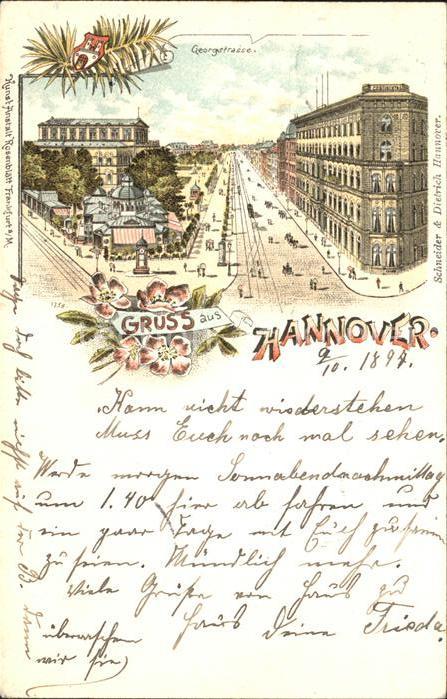 Georgstrasse.
Kunst-Anstalt Rosenblatt Frankfurt a/M.
Schneider & Dietrich Hannover.
GRUSS aus
HANNOVER.
9/10. 1897.
Kann nicht wiederstehen
Muss Euch noch mal sehen,
Werde morgen Sonnabendnachmittag
um 1.40 hier ab fahren und
ein paar Tage mit Euch zusamm
zu sein. Mündlich mehr.
Viele Grüße von Haus zu
Haus deine Frieda.
doch bitte nicht auf der B. dann
überraschen
wir sie)